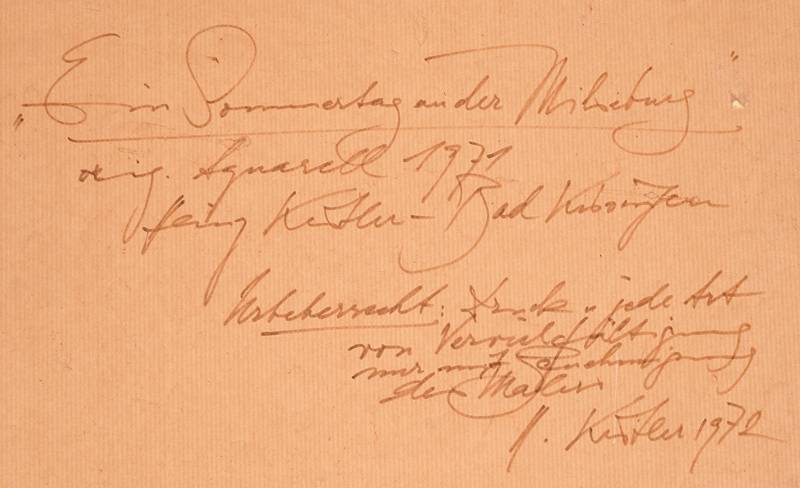 „Ein Sommertag an der Milseburg"
orig. Aquarell 1971
Heinz Kistler - Bad Kissingen
Urheberrecht: Druck u. jede Art
von Vervielfältigung
nur mit Genehmigung
des Malers
H. Kistler 1972